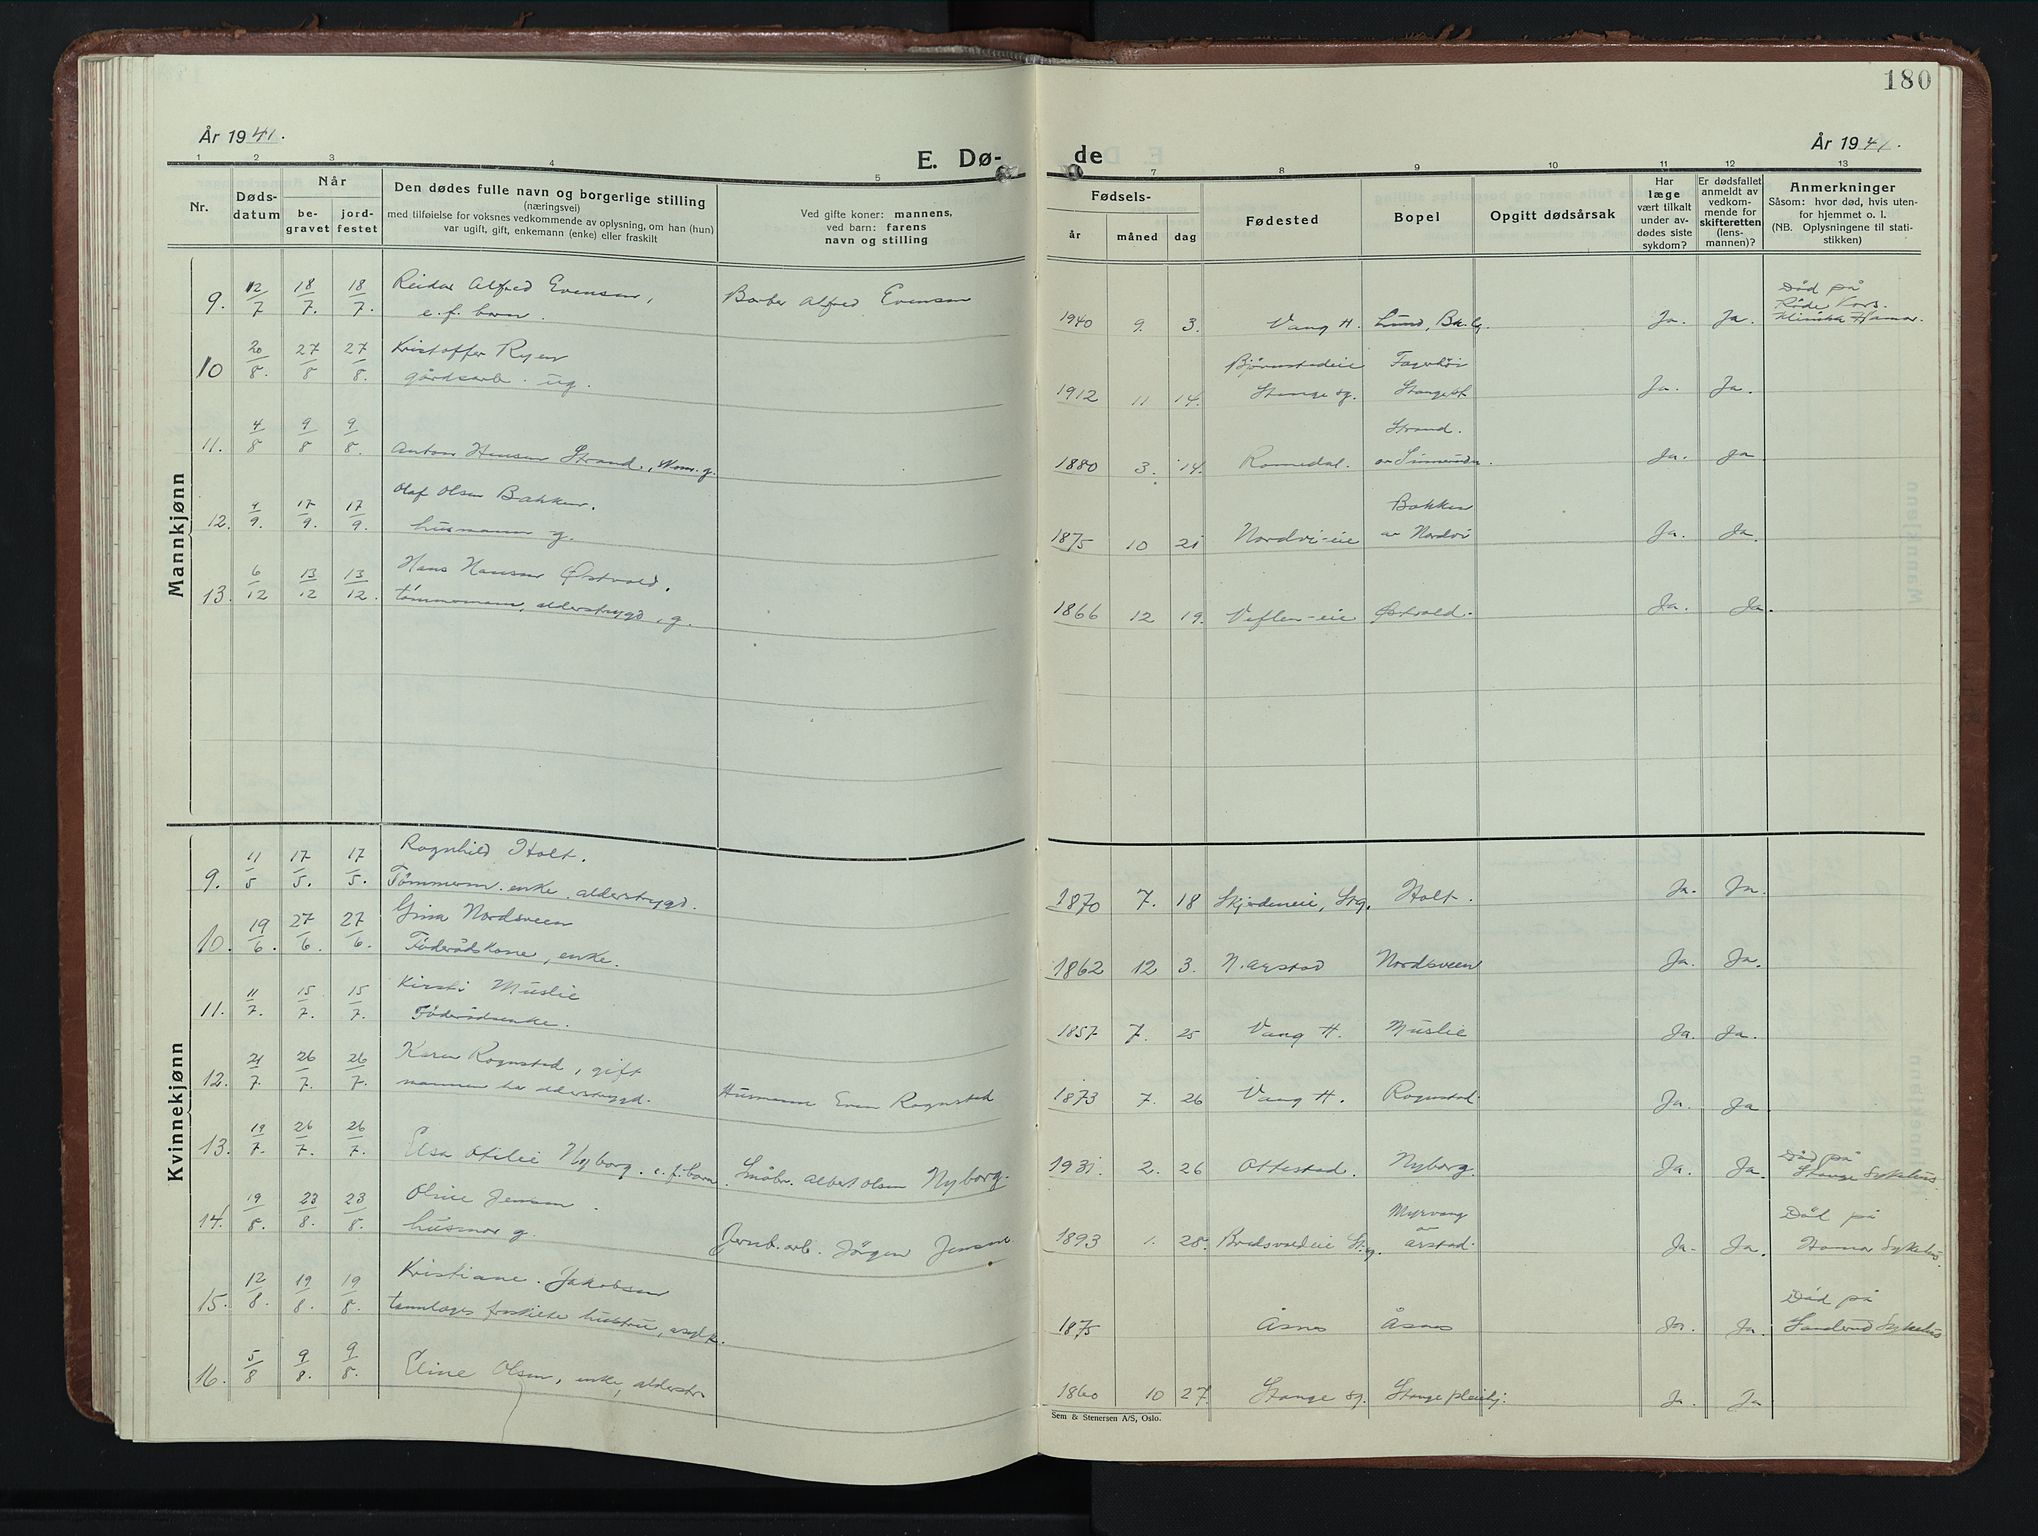 180
År 1941.
E. Døde
År 1941.
1 2 3 4 5 7 8 9 10 11 12 13
Nr.
Døds-
datum
Når
be-
gravet
jord-
festet
Den dødes fulle navn og borgerlige stilling
(næringsvei)
med tilføielse for voksnes vedkommende av oplysning, om han (hun)
var ugift, gift, enkemann (enke) eller fraskilt
Ved gifte koner: mannens,
ved barn: farens
navn og stilling
Fødsels-
år
måned
dag
Fødested
Bopel
Opgitt dødsårsak
Har
læge
vært tilkalt
under av-
dødes siste
sykdom?
Er dødsfallet
anmeldt av
vedkom-
mende for
skifteretten
(lens-
mannen)?
Anmerkninger
Såsom: hvor død, hvis uten-
for hjemmet o. l.
(NB. Oplysningene til stati-
stikken)
Mannkjønn
9. 12/7 18/7. 18/7. Reidar Alfred Evensen,
e. f. barn. Barber Alfred Evensen
1940 9. 3. Vang H. Lund, Ja. Ja. Død på
Røde Kors.
Klinikk Hamar.
10 20/8. 27/8 27/8. Kristoffer Ryen
gårdsarb. ug.
1912 11 14. Stange sg. Ja. Ja.
11. 4/8 9/8 9/8. Anton Hansen Strand., g.
1880 3. 14. Romedal. Strand. Ja. Ja
12. 4/9. 17/9. 17/9. Olaf Olsen Bakken.
husmann g.
1875 10 21 Nordvi-eie Bakken
av Nordvi Ja. Ja.
13. 6/12 13/12 13/12. Hans Hansen Østvold.
tømmermann, alderstrygd, g.
1866 12 19. Veflen-eie Østvold. Ja. Ja.
Kvinnekjønn
9. 11/5 17/5. 17/5. Rognhild Holt.
Tømmerm. enke. alderstrygd.
1870 7. 18 Skjerdeneie, Stg. Holt. Ja. Ja.
10. 19/6. 27/6. 27/6. Gina Nordsveen
Føderådskone, enke.
1862 12 3. N. Arstad Nordsveen Ja. Ja.
11. 11/7. 15/7. 15/7. Kirsti Muslie
Føderådsenke.
1857 7. 25 Vang H. Muslie Ja. Ja.
12. 21/7. 26/7. 26/7. Karen Rognstad, gift
mannen har alderstrygd. Husmann Even Rognstad
1873 7. 26 Vang H. Rognstad. Ja. Ja
13. 19/7. 26/7. 26/7. Elsa Otilie Nyborg. e. f. barn. Småbr. Albert Olsen Nyborg.
1931. 2. 26 Ottestad. Nyborg. Ja. Ja. Død på
Stange Sykehus.
14. 19/8. 23/8. 23/8. Oline Jensen.
husmor g. Jernb. arb. Jørgen Jensen
1893 1. 28. Myrvang
av
Arstad. Ja. Ja. Død på
Hamar Sykehus.
15. 12/8. 19/8. 19/8. Kristiane Jakobsen
tannlæges fraskilte hustru,
1875 Åsnes Åsnes Ja. Ja. Død på
Sanderud Sykehus
16. 5/8 9/8. 9/8. Eline Olsen, enke, alderstr.
1860 10 27. Stange sg. Stange pleiehj. Ja Ja
Sem & Stenersen A/S, Oslo.